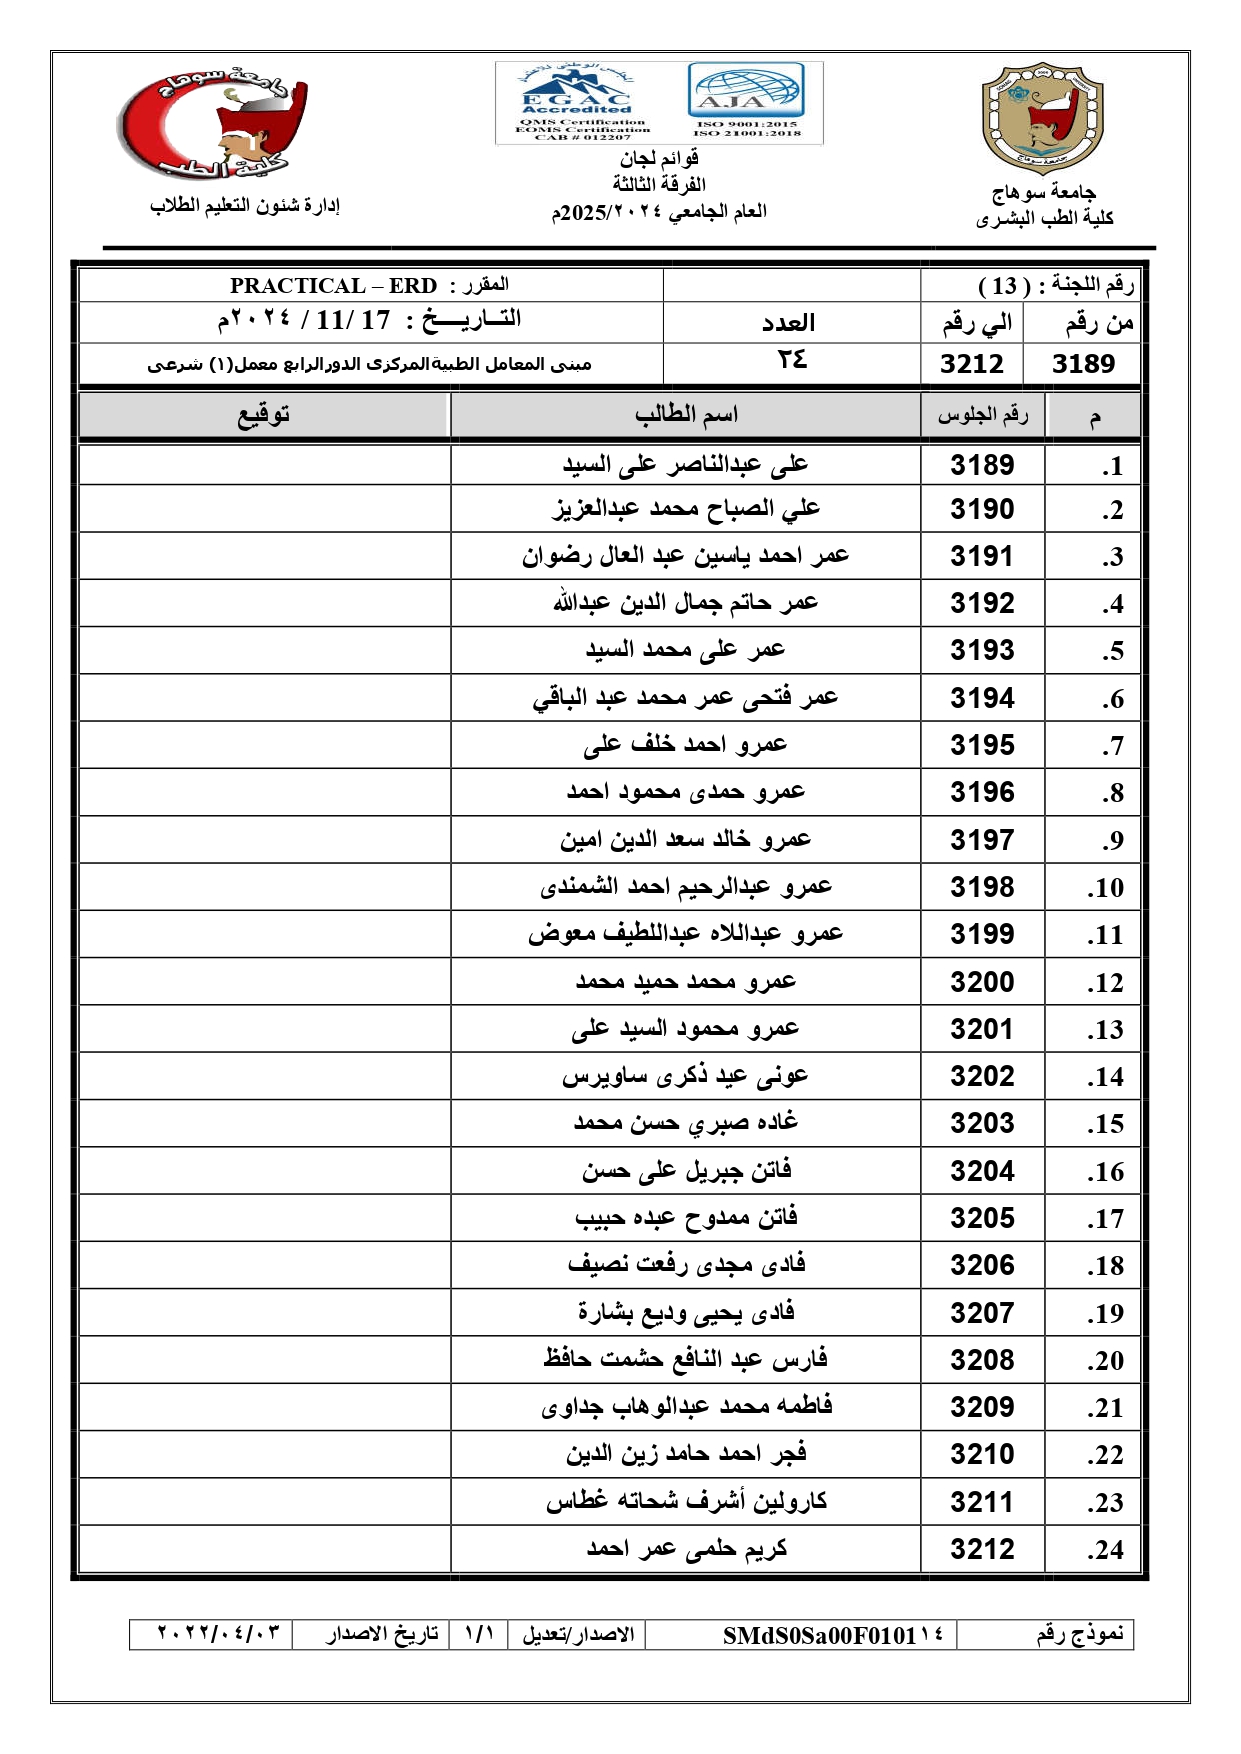 جامعة سوهاج
كلية الطب
إدارة شئون التعليم الطلاب
المجلس الوطني للاعتماد
EGAC
Accredited
QMS Certification
EOMS Certification
CAB # 012207
AJA
ISO 9001:2015
ISO 21001:2018
قوائم لجان
الفرقة الثالثة
العام الجامعي ٢٠٢٤/2025م
جامعة سوهاج
جامعة سوهاج
كلية الطب البشرى
رقم اللجنة : ( 13 ) المقرر : PRACTICAL – ERD
من رقم الي رقم العدد التــاريــــخ : 17 /11 / ٢٠٢٤م
3189 3212 ٢٤ مبنى المعامل الطبيةالمركزى الدورالرابع معمل(١) شرعى
م رقم الجلوس اسم الطالب توقيع
1. 3189 على عبدالناصر على السيد
2. 3190 علي الصباح محمد عبدالعزيز
3. 3191 عمر احمد ياسين عبد العال رضوان
4. 3192 عمر حاتم جمال الدين عبدالله
5. 3193 عمر على محمد السيد
6. 3194 عمر فتحى عمر محمد عبد الباقي
7. 3195 عمرو احمد خلف على
8. 3196 عمرو حمدى محمود احمد
9. 3197 عمرو خالد سعد الدين امين
10. 3198 عمرو عبدالرحيم احمد الشمندى
11. 3199 عمرو عبداللاه عبداللطيف معوض
12. 3200 عمرو محمد حميد محمد
13. 3201 عمرو محمود السيد على
14. 3202 عونى عيد ذكرى ساويرس
15. 3203 غاده صبري حسن محمد
16. 3204 فاتن جبريل على حسن
17. 3205 فاتن ممدوح عبده حبيب
18. 3206 فادى مجدى رفعت نصيف
19. 3207 فادى يحيى وديع بشارة
20. 3208 فارس عبد النافع حشمت حافظ
21. 3209 فاطمه محمد عبدالوهاب جداوى
22. 3210 فجر احمد حامد زين الدين
23. 3211 كارولين أشرف شحاته غطاس
24. 3212 كريم حلمى عمر احمد
نموذج رقم SMdS0Sa00F0101١٤ الاصدار/تعديل ١/١ تاريخ الاصدار ٢٠٢٢/٠٤/٠٣